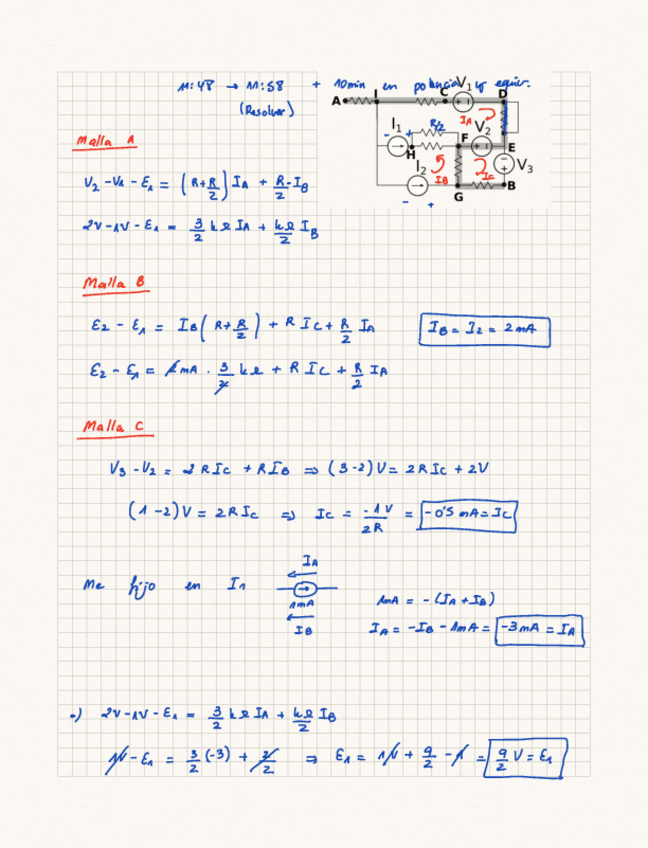 11:48 → 11:58 + 10min en potencia y equiv.
(Resolver)
A I C V₁ D
I₁ R/2 IA V₂
- + H F E
I₂ IB IC V₃
G B
- +
Malla A
V₂-V₁-E₁ = (R+R/2) IA + R/2·IB
2V-1V-E₁ = 3/2 kΩ IA + kΩ/2 IB
Malla B
E₂ - E₁ = IB(R+R/2) + R IC + R/2 IA
IB = I₂ = 2mA
E₂ - E₁ = 2mA · 3/2 kΩ + R IC + R/2 IA
Malla C
V₃-V₂ = 2RIC + RIB ⇒ (3-2)V = 2RIC + 2V
(1-2)V = 2RIC ⇒ IC = -1V/2R = -0'5 mA = IC
Me fijo en I₁
IA
1mA
IB
1mA = -(IA+IB)
IA = -IB - 1mA = -3mA = IA
•) 2V-1V-E₁ = 3/2 kΩ IA + kΩ/2 IB
1V-E₁ = 3/2(-3) + 2/2 ⇒ E₁ = 1V + 9/2 - 1 = 9/2 V = E₁